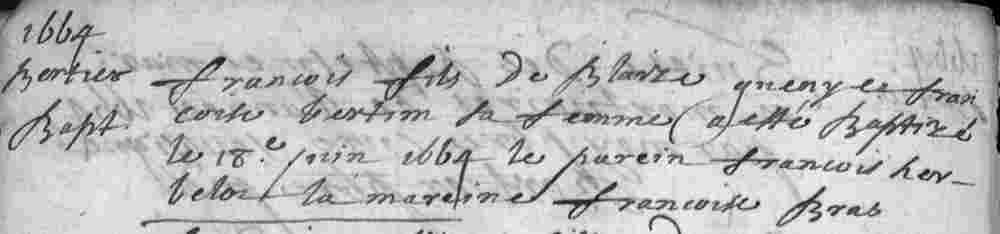 1664
Bertier françois fils De Blaize queny et fran
Bapt. coise bertim sa femme (a esté Baptizé
le 18.e juin 1664 le parein francois her-
belot la mareine francoise Bras